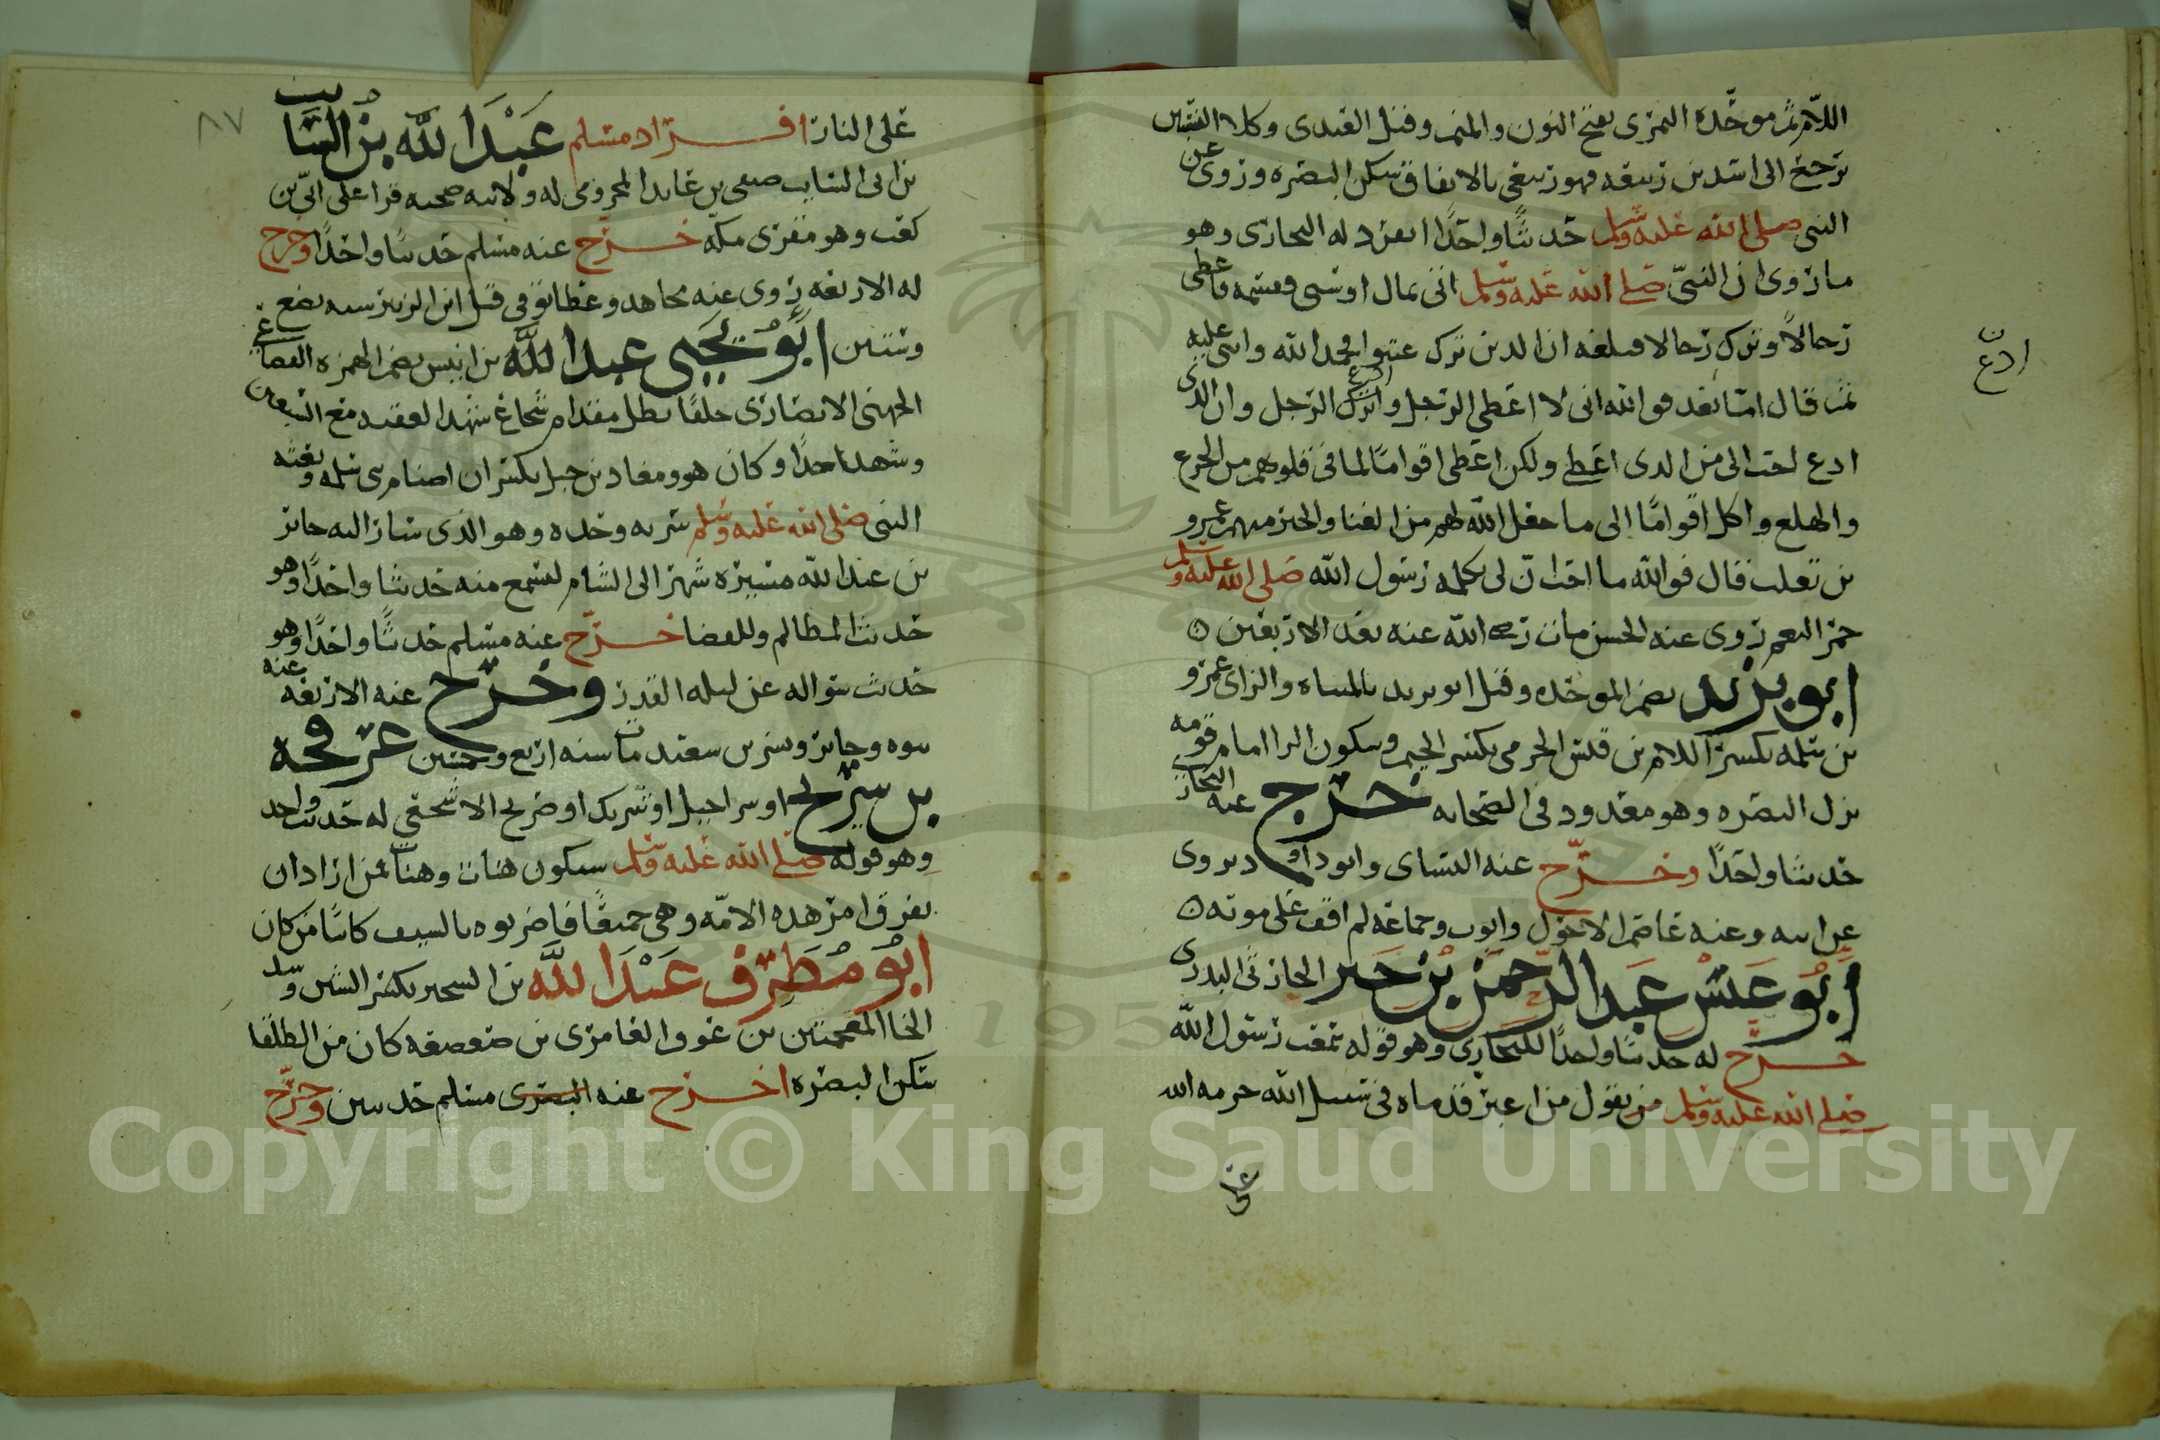 اللام ثم موحده النمري بفتح النون والميم وقيل العبدى وكلا النسبتين
ترجع الى اسد بن ربيعه فهو ربيعى بالاتفاق سكن البصره وروى عن
النبى صلى الله عليه وسلم حديثًا واحدًا انفرد له البخارى وهو
ما روى ان النبىّ صلى الله عليه وسلم اتى بمال او سبى فقسمه فاعطى
رجالاً وترك رجالا فبلغه ان الذين ترك عتبوا فحمد الله واثنى عليه
ثم قال امّا بعد فوالله انى لا اعطى الرجل واترك الرجل وان الذى
ادع
ادع احب الى من الذى اعطى ولكن اعطى اقوامًا لما فى قلوبهم من الجزع
والهلع واكل اقوامًا الى ما جعل الله لهم من الغنا والخير منهم عمرو
بن تغلب قال فوالله ما احب ان لى بكلمه رسول الله صلى الله عليه وسلم
حمر النعم روى عنه الحسن مات رضى الله عنه بعد الاربعين
ابو بريد بضم الموحده وقيل ابو يزيد بالمثناه والزاى عمرو
بن سلمه بكسر اللام بن قيس الجرمى بكسر الجيم وسكون الرا امام قومه
نزل البصره وهو معدود فى الصحابه خرج عنه البخارى
حديثا واحدًا وخرّج عنه النساى وابو داود يروى
عن ابيه وعنه عاصم الاحول وايوب وجماعه لم اقف على موته
ابو عبس عبد الرحمن بن جبر الحارثى البدرى
خرّج له حديثا واحدًا البخارى وهو قوله سمعت رسول الله
صلى الله عليه وسلم من يقول من اغبر قدماه فى سبيل الله حرمه الله
على
ادع ن
٨٧
على النار افراد مسلم عبد الله بن السايب
بن ابى السايب صيفى بن عايد المخزومى له ولابيه صحبه قرا على ابىّ بن
كعب وهو مقرى مكه خرّج عنه مسلم حديثا واحدًا وخرج
له الاربعه روى عنه مجاهد وعطا توفى قبل ابن الزبير سنه بضع
وستين ابو يحيى عبد الله بن انيس بضم الهمزه القضاعى
الجهنى الانصارى حلفًا بطل مقدام شجاع شهد العقبه مع السبعين
وشهد احدًا وكان هو ومعاد بن جبل يكسران اصنام بنى سلمه وبعثه
النبى صلى الله عليه وسلم سريه وحده وهو الذى سار اليه جابر
بن عبد الله مسيره شهر الى الشام لسمع منه حديثا واحدًا وهو
حديث المظالم وللقضا خرّج عنه مسلم حديثًا واحدًا وهو
حديث سواله عن ليله القدر وخرّج عنه الاربعه عنه
بنوه وجابر وبسر بن سعيد مات سنه اربع وخمسين عرفجه
بن سريح او سراحيل او شريك او ضريح الاشجعى له حديث واحد
وهو قوله صلى الله عليه وسلم سيكون هنات وهنات فمن اراد ان
يفرق امر هذه الامّه وهى جميعًا فاضربوه بالسيف كائنًا من كان
ابو مطرف عبد الله بن الشخير بكسر الشين وتشديد
الخا المعجمتين بن عوف العامرى بن صعصعه كان من الطلقا
سكن البصره اخرج عنه البصرى مسلم حديثين وخرّج
Copyright © King Saud University
1957